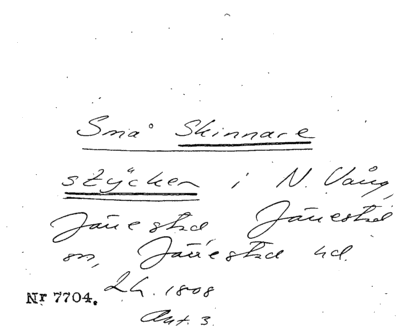 Små Skinnare
stycken i N. Vång,
Järrestad Järrestad
sn, Järrestad hd.
Lh. 1808
Nr 7704.
Akt. 3.